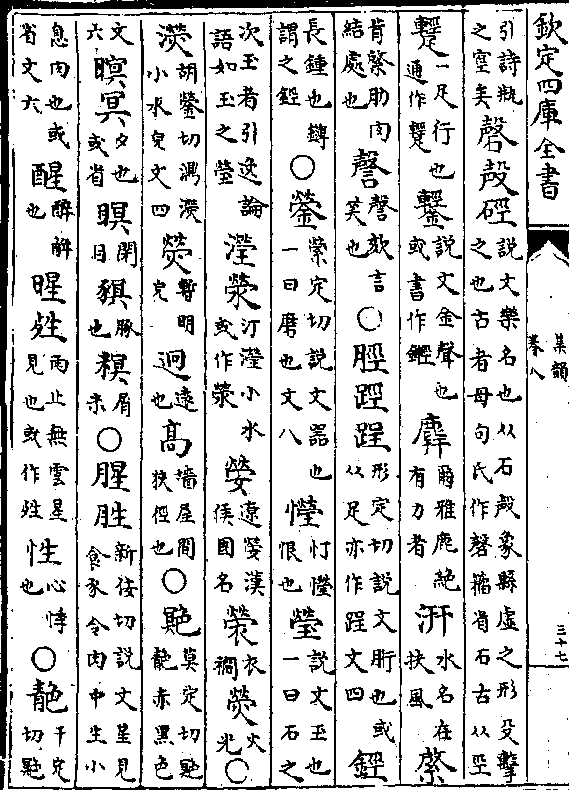 欽定四庫全書 集韻 卷八 三十七
引詩瓶之窒矣 磬殸硜 說文樂名也从石殸象縣虛之形殳擊之也古者母句氏作磬籀省石古从巠
一足行也通作 鑋 說文金聲也或書作 麉 爾雅鹿絶有力者 汧 水名在扶風 綮
肯綮肋肉結處也 謦 謦欬言笑也 ○ 脛踁 形定切說文胻也或从足亦作文四 鋞
長鍾也鏄謂之鋞 ○ 鎣 縈定切說文器也一曰磨也文八 恨也 瑩 說文玉也一曰石之
次玉者引逸論語如玉之瑩 瀅濙 汀瀅小水或作濙 遼漢侯國名 褮 衣襉 熒 火光 ○
濙 胡鎣切濎濙小水皃文四 熒 暫明皃 迥 遠也 高 墻屋間狹徑也 ○ 艵 莫定切艵靘赤黑色
文六 暝冥 夕也或省 瞑 閉目 豚也 屑米 ○ 腥胜 新佞切說文星見食豕令肉中生小
息肉也或省文六 醒 醉解也 暒夝 雨止無雲星見也或作夝 性 心悸也 ○ 靘 千定切艵